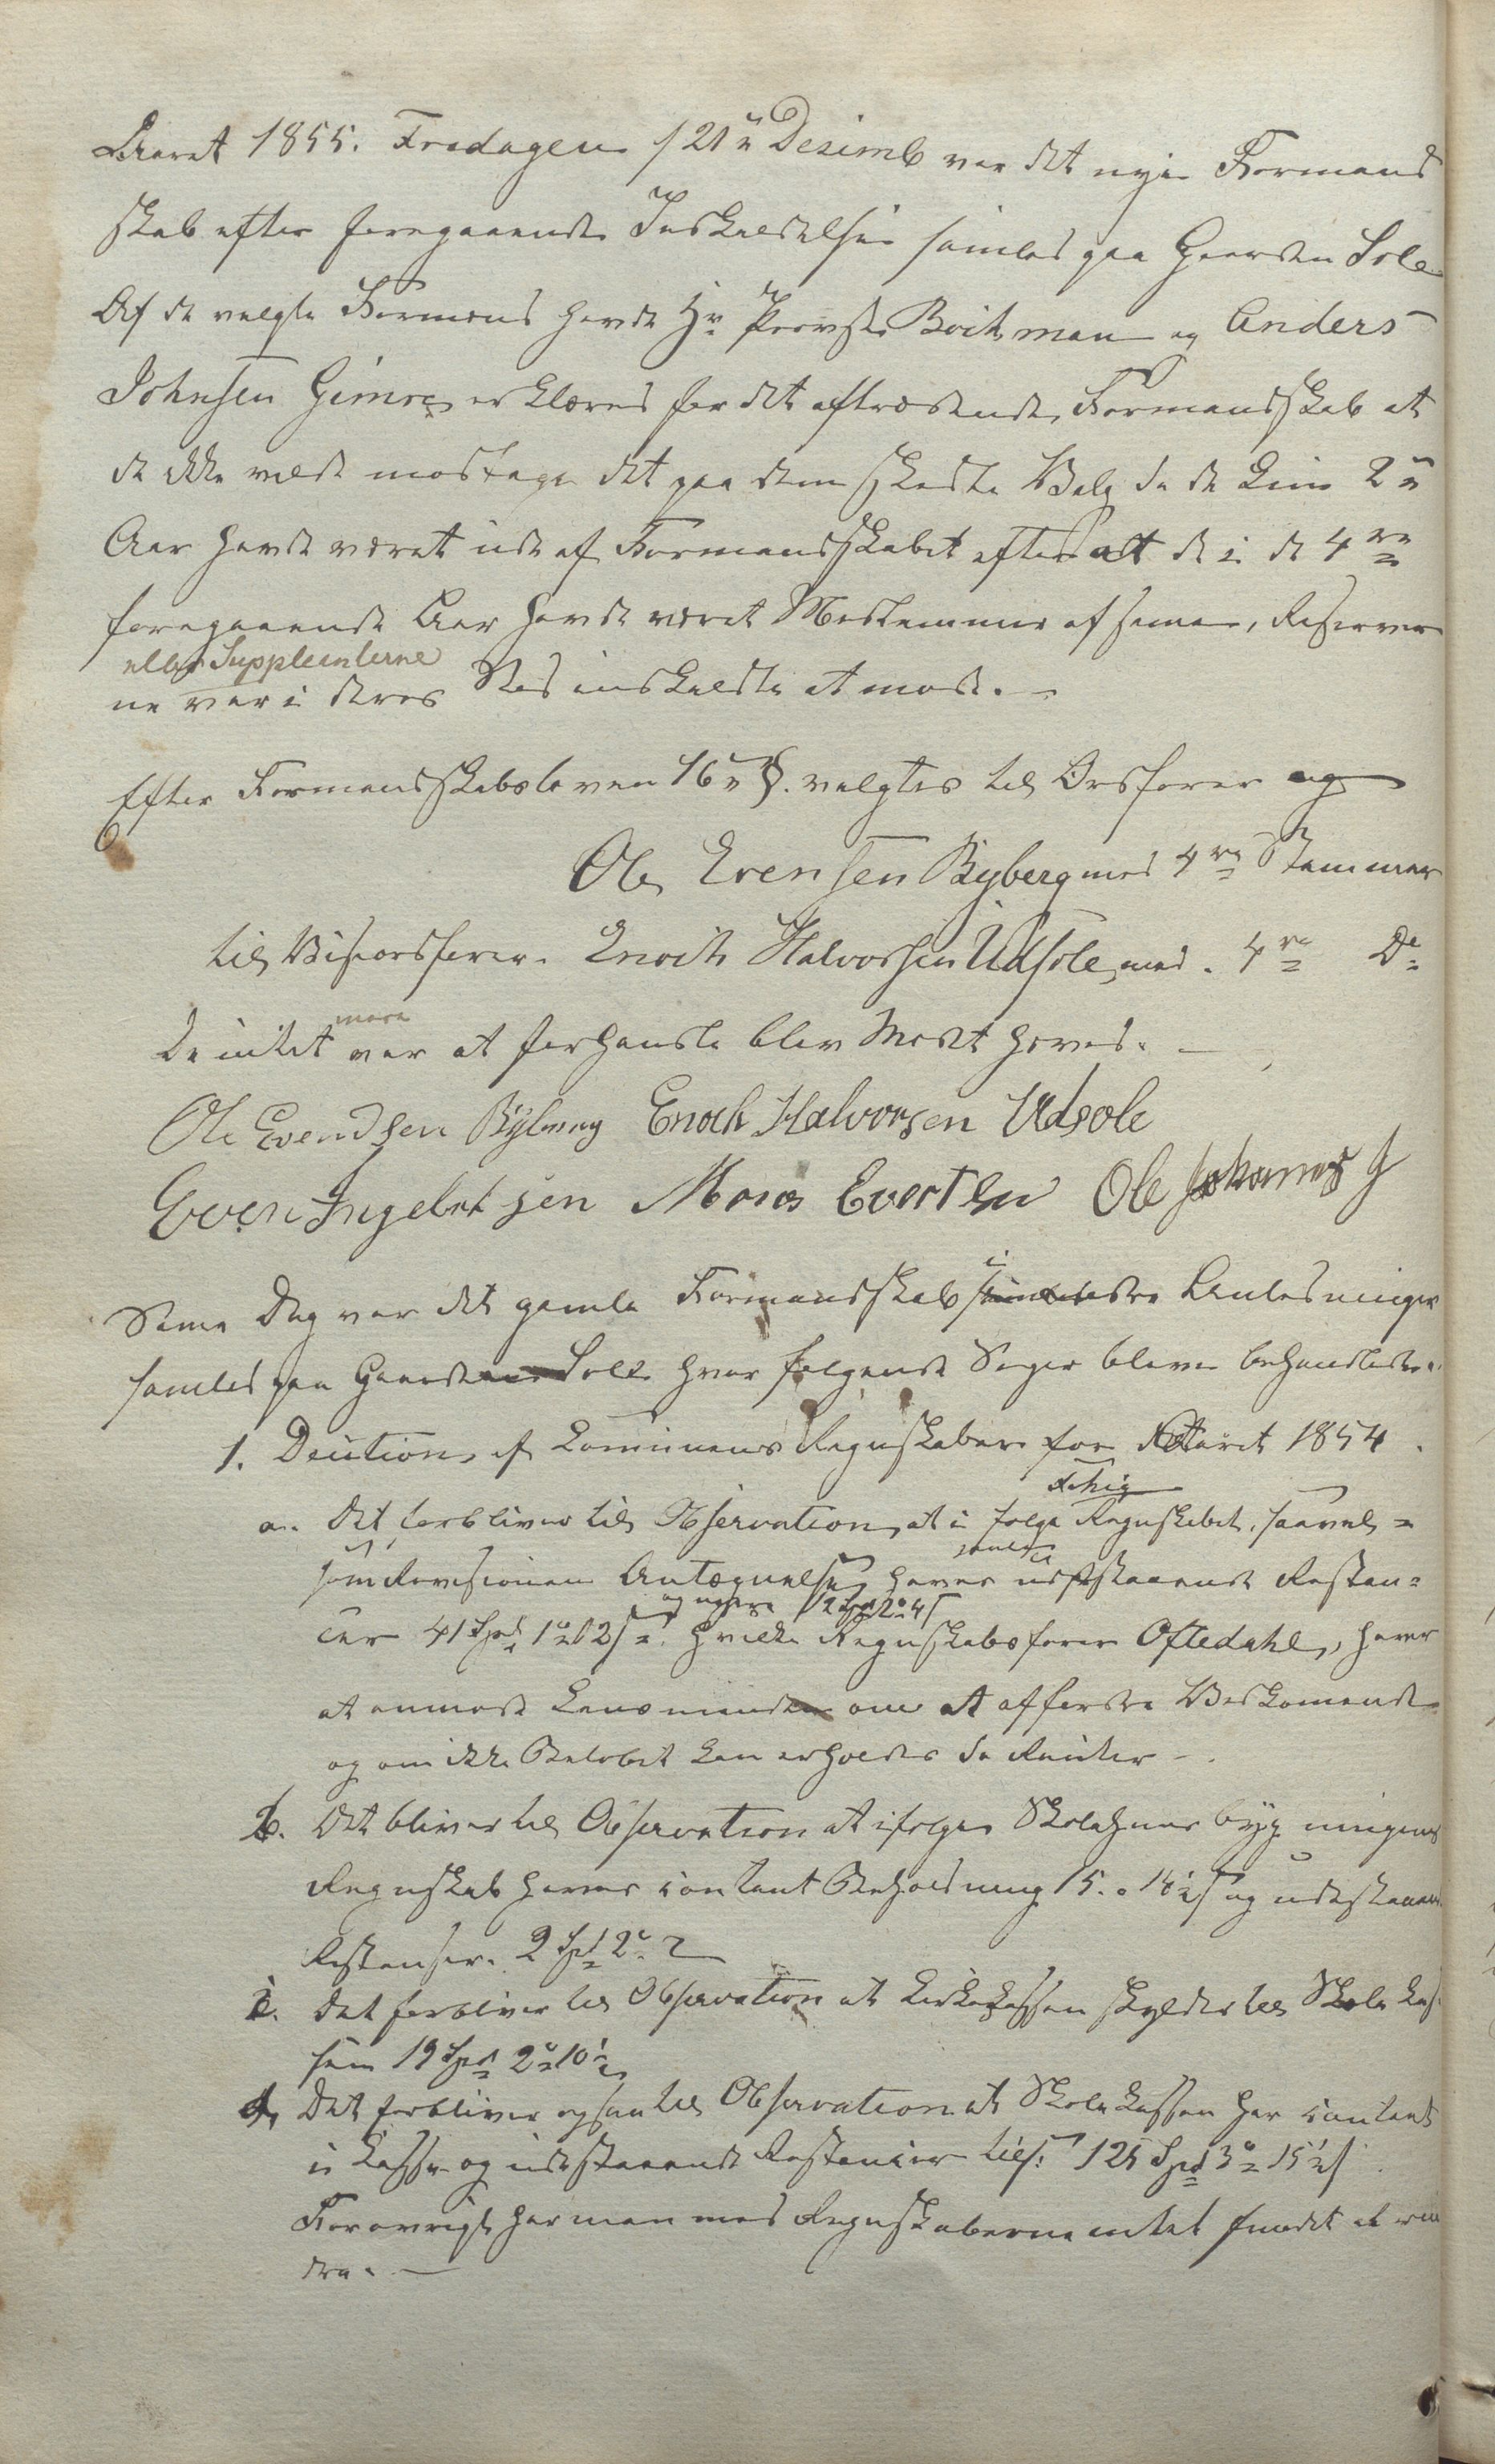 Aaret 1855. Fredagen 21 Desemb var det nye Formand
skab efter foregaaende Indkaldelse samled paa Gaarden Sole
Af de valgte Formænd havde Hr Provst Bockman og Anders
Johnsen Gimre erklæred for det aftrædende Formandskab at
de ikke vilde modtage det paa dem skedte Valg da de kun 2
Aar havde været ude af Formandskabet efterat de i de 4re
foregaaende Aar havde været Medlemmer af samme, Reserver
eller Suppleanterne
ne var i deres Sted indkaldte at møde. -
Efter Formandskabsloven 16 §. valgtes til Ordfører og
Ole Evensen Byberg med 4re Stemmer
til Viseordfører. Enoch Halvorsen Udsole med. 4re Do
mere
Da intet var at forhandle blev Mødet hæved. -
Ole Evendsen Byberg Enoch Halvorsen Udsole
Even Ingebretsen Mons Evertsen Ole Johannes J
Same Dag var det gamle Formandskab i Anledninger
samled paa Gaarden Sole hvor følgende Sager bleve behandlede.
1. Decition af Comunens Regnskaber for Aaret 1854.
a. Det forbliver til Observation, at i følge Regnskabet, saavel =
som Revisionen Antegnelse haves udestaaende Restan=
og
cer 41 Spd 1 2 s. hvilke Regnskabsfører Oftedahl, haver
at anmode Lensmanden om at affordre Vedkomende
og om ikke Beløbet kan erholdes da
b. Det bliver til Observation at ifølge Skolehuus bygningens
Regnskab haves contant Beholdning 15. og udestaaen
Restanser. 2 Spd 2
c. Det forbliver til Observation at Kirkekassen skylder til Skole kas
sen 19 Spd 2 10
d. Det forbliver ogsaa til Observation at Skole kassen har contant
i Kasse og udestaaende Restancer tils: 125 Spd 3 15 s
Forøvrigt har man med Regnskaberne intet fundet at erin
dre. -